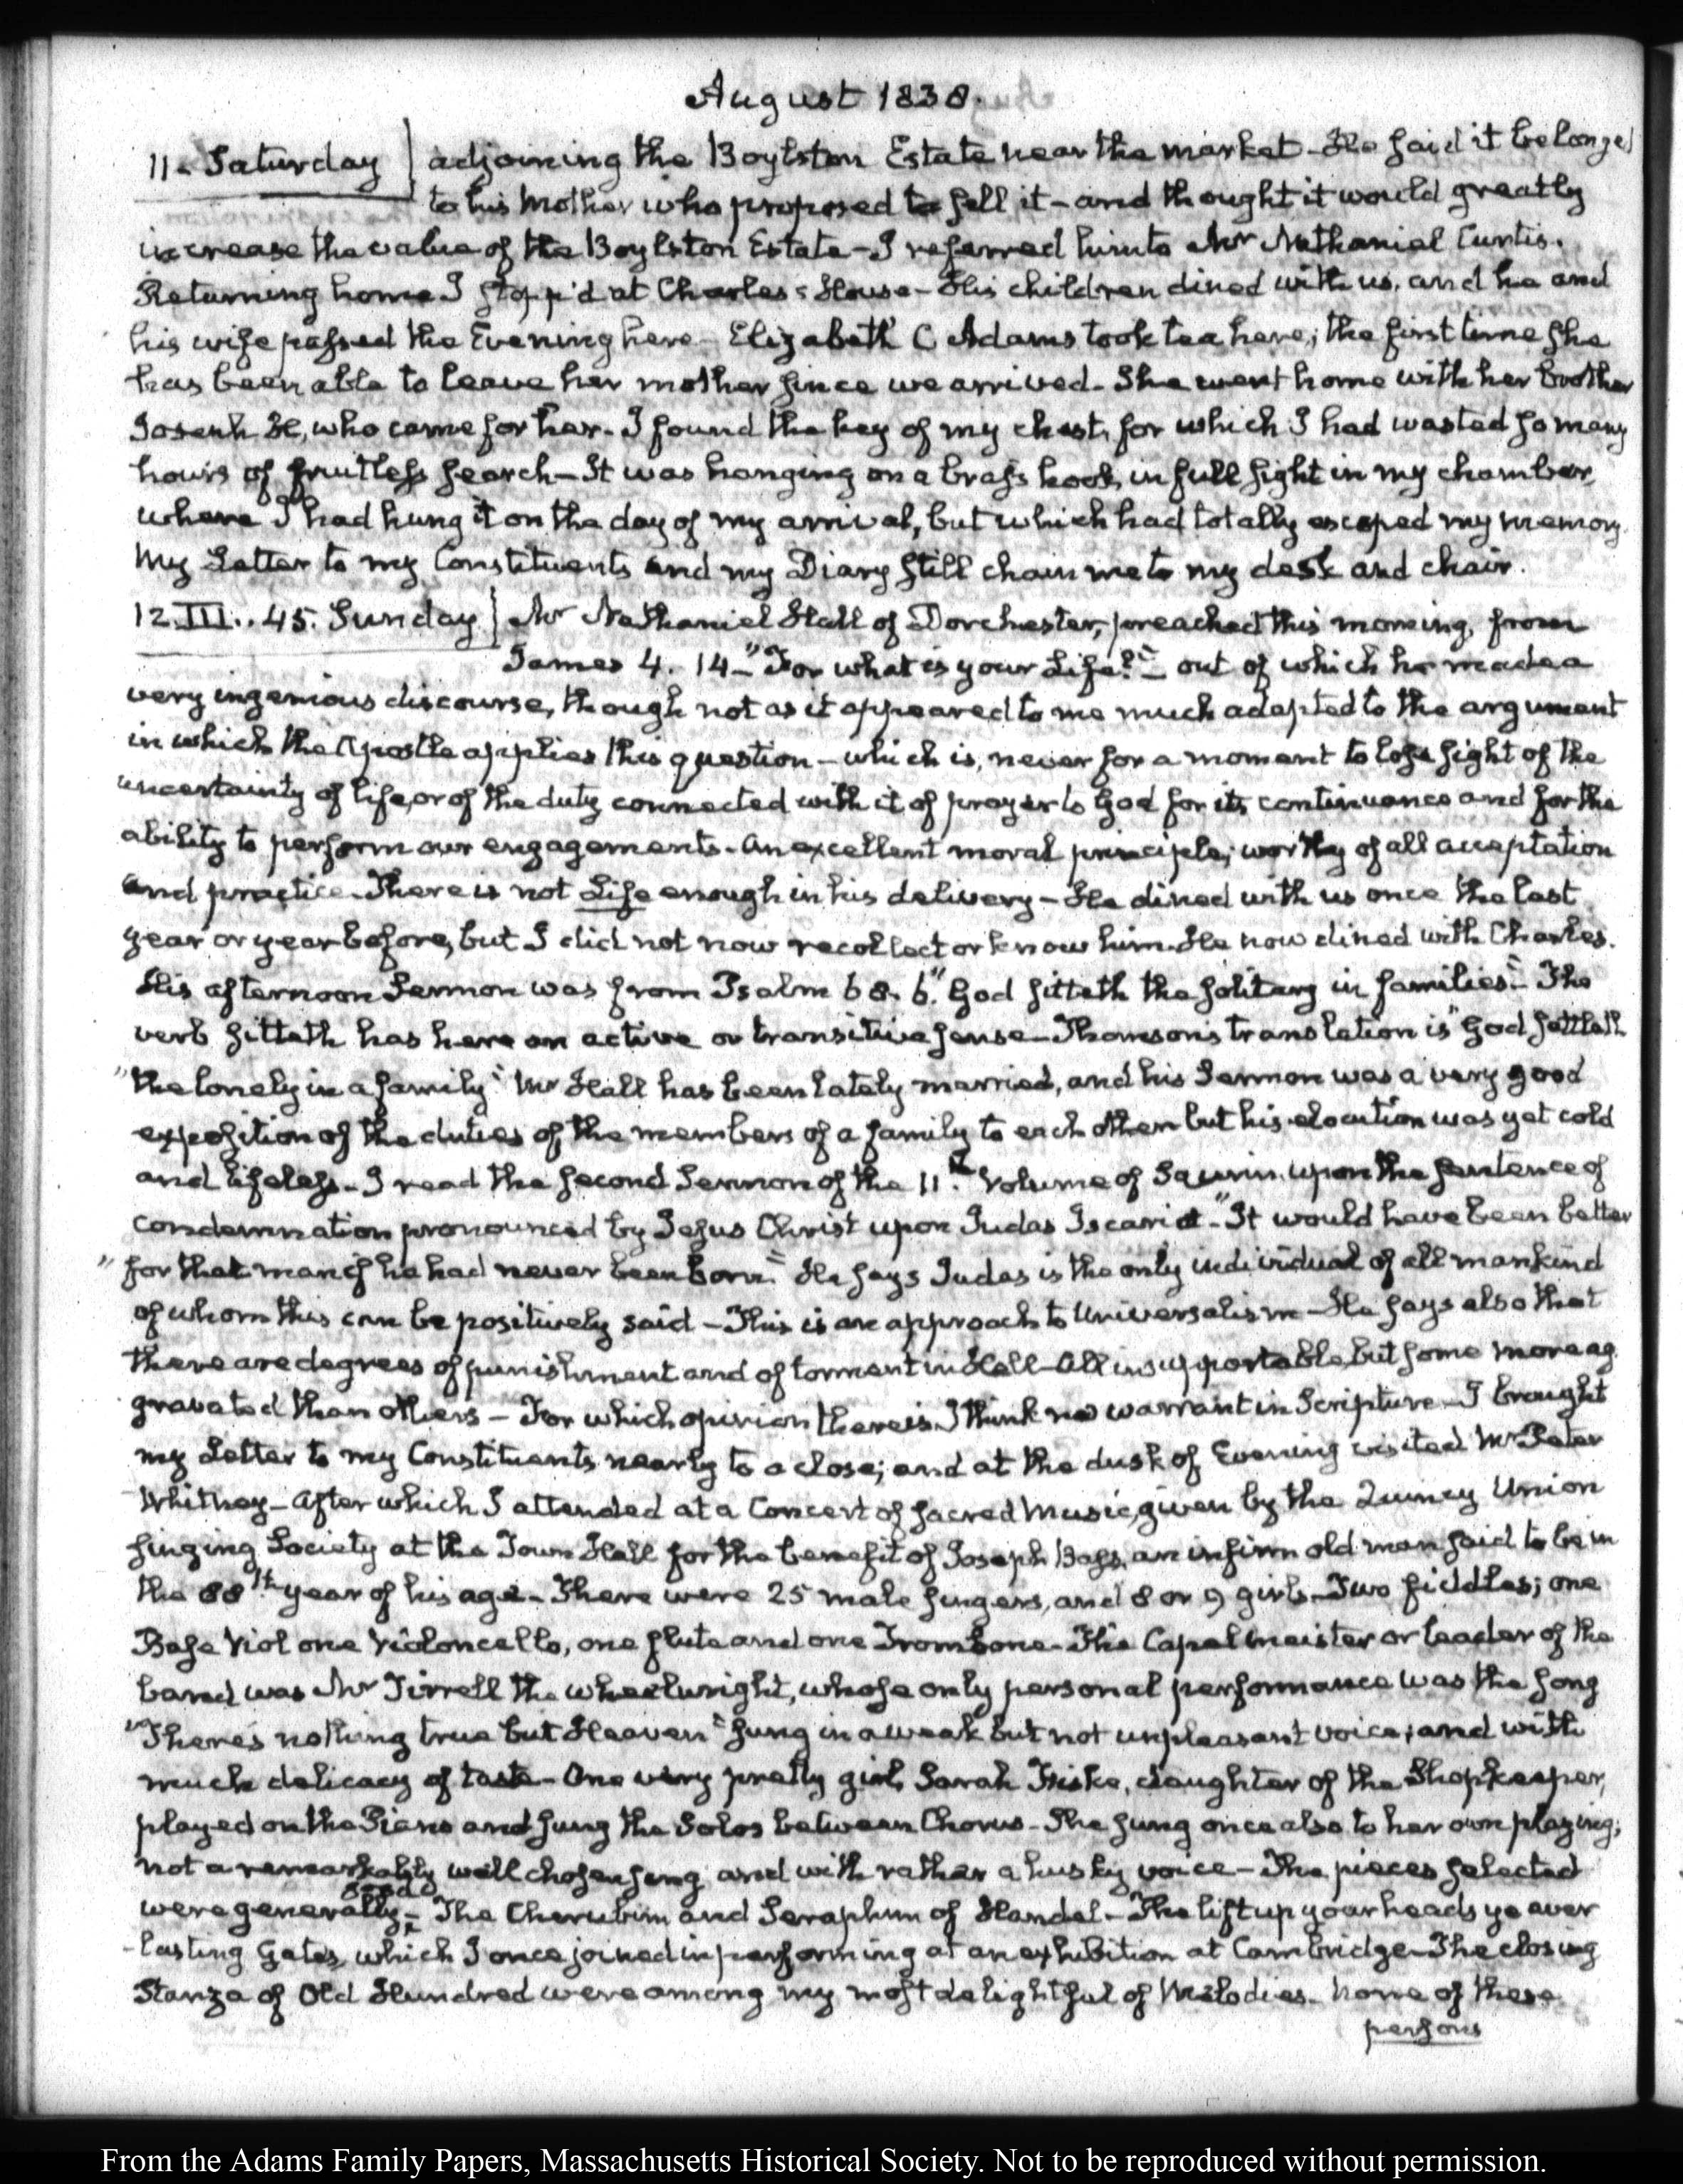 August 1838.
11. Saturday } adjoining the Boylston Estate near the market - He said it belonged
to his Mother who proposed to sell it - and thought it would greatly
increase the value of the Boylston Estate - I referred him to Mr Nathaniel Curtis.
Returning home I stopp'd at Charles's House - His children dined with us, and he and
his wife passed the Evening here - Elizabeth C Adams took tea here; the first time she
has been able to leave her mother since we arrived. She went home with her brother
Joseph H, who came for her. I found the key of my chest, for which I had wasted so many
hours of fruitless search - It was hanging on a brass hook, in full sight in my chamber,
where I had hung it on the day of my arrival, but which had totally escaped my memory.
My Letter to my Constituents and my Diary still chain me to my desk and chair.
12. III.. 45. Sunday } Mr Nathaniel Hall of Dorchester, preached this morning, from
James 4. 14 - "For what is your Life?" - out of which he made a
very ingenious discourse, though not as it appeared to me much adapted to the argument
in which the Apostle applies this question - which is, never for a moment to lose sight of the
uncertainty of life, or of the duty connected with it of prayer to God for its continuance and for the
ability to perform our engagements. An excellent moral principle; worthy of all acceptation
and practice. There is not Life enough in his delivery - He dined with us once the last
year or year before, but I did not now recollect or know him. He now dined with Charles.
His afternoon Sermon was from Psalm 68. 6. "God sitteth the solitary in families" - The
verb sitteth has here an active or transitive sense - Thomson's translation is "God settleth
"the lonely in a family" Mr Hall has been lately married, and his Sermon was a very good
exposition of the duties of the members of a family to each other but his elocution was yet cold
and lifeless - I read the second Sermon of the 11th Volume of Saurin, upon the sentence of
condemnation pronounced by Jesus Christ upon Judas Iscariot - "It would have been better
"for that man if he had never been born." He says Judas is the only individual of all mankind
of whom this can be positively said - This is an approach to Universalism - He says also that
there are degrees of punishment and of torment in Hell - All insupportable, but some more ag
gravated than others - For which opinion there is I think no warrant in Scripture - I brought
my Letter to my Constituents nearly to a close; and at the dusk of Evening visited Mr Peter
Whitney - After which I attended at a Concert of sacred Music, given by the Quincy Union
singing Society at the Town Hall for the benefit of Joseph Bass, an infirm old man said to be in
the 88th year of his age - There were 25 male singers, and 8 or 9 girls - Two fiddles; one
Base Viol one Violoncello, one flute and one Trombone - The Capelmeister or leader of the
band was Mr Tirrell the wheelwright, whose only personal performance was the song
"There's nothing true but Heaven" sung in a weak but not unpleasant voice; and with
much delicacy of taste - One very pretty girl, Sarah Friske, daughter of the Shopkeeper,
played on the Piano and sung the Solos between Chorus - She sung once also to her own playing;
not a remarkably well chosen song and with rather a husky voice - The pieces selected
were generally good - The Cherubim and Seraphim of Handel - The lift up your heads ye ever
-lasting Gates, which I once joined in performing at an exhibition at Cambridge - The closing
Stanza of Old Hundred were among my most delightful of Melodies. None of these
persons
From the Adams Family Papers, Massachusetts Historical Society. Not to be reproduced without permission.